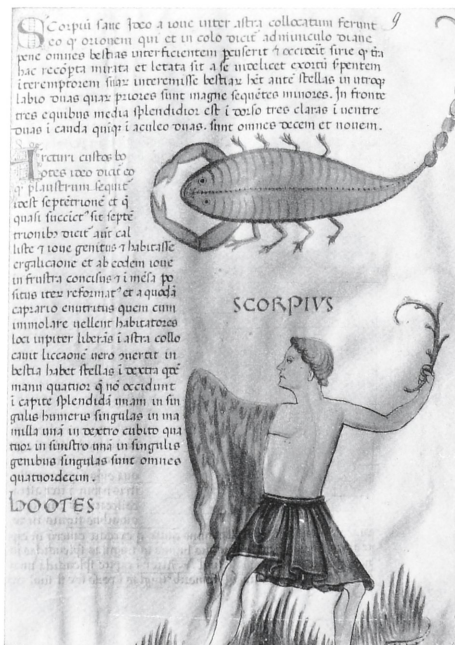 9
Scorpiu sane ideo a ioue inter astra collocatum ferunt
eo q orionem qui et in colo dicit adminiculo diane
pene omnes bestias interficientem peuserit 7 occidit sirie q tra
hac recopta mirata et letata sit a se uidelicet exortu spentem
iteremptorem suar interemisse bestiar het ante stellas in utroq
labio duas quar priores sunt magne sequetes minores. In fronte
tres equibus media splendidior est i dorso tres claras i uentre
duas i cauda quiqz i aculeo duas. sunt omnes decem et nouem.
Arcturi custos bo
otes ideo dicit eo
q plaustrum sequit
idest septetrione et q
quasi succiet sit septe
trionibz dicit aut cal
liste 7 ioue genitus 7 habitasse
ergalicaone et ab eodem ioue
in frustra concisus 7 i mesa po
situs iter reformat et a quoda
caprario enutritus quem cum
immolare uellent habitatores
loci iupiter liberas i astra collo
cauit liccaone uero uertit in
bestia habet stellas i dextra qte
manu quatuor q no occidunt
i capite splendida unam in sin
gulis humeris singulas in ma
milla una in dextro cubito qua
tuor in sinistro una in singulis
genibus singulas sunt omnes
quatuordecim.
SCORPIVS
bOOTES